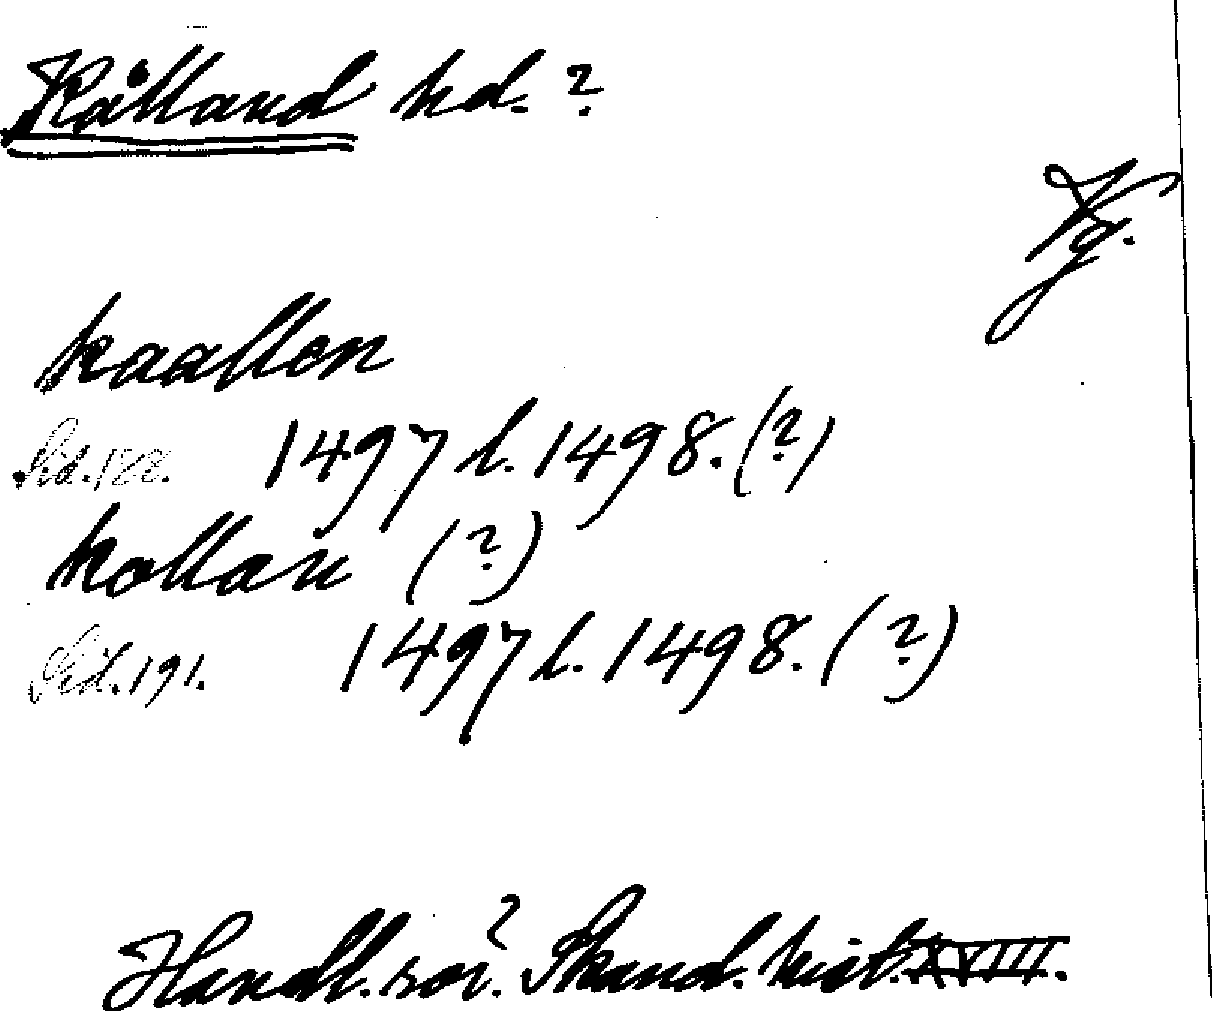 Kålland hd. ?
Vg.
kaallen
Sid. 122. 1497 l. 1498. (?)
kollan (?)
Sid. 191. 1497 l. 1498. (?)
Handl. rör. Skand. hist. XVIII.